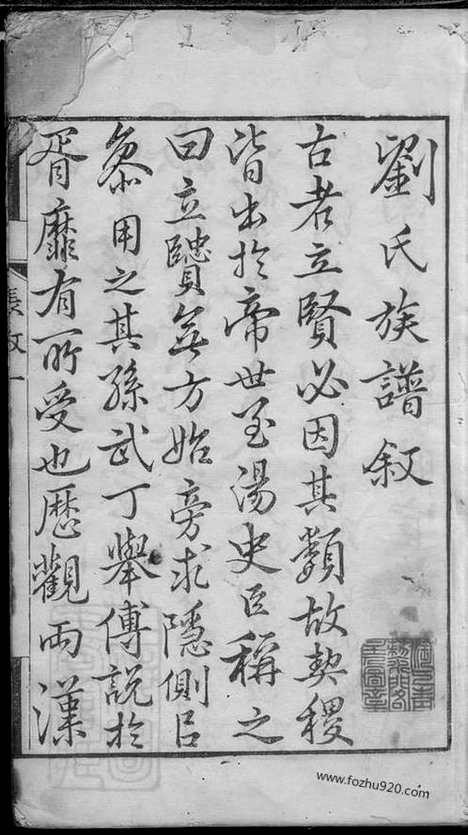 劉氏族譜叙
古者立賢必因其類故契稷
皆出於帝世至湯史臣稱之
曰立賢無方始旁求隱側以
參用之其孫武丁舉傅說於
胥靡有所受也歷觀兩漢
www.fozhu920.com